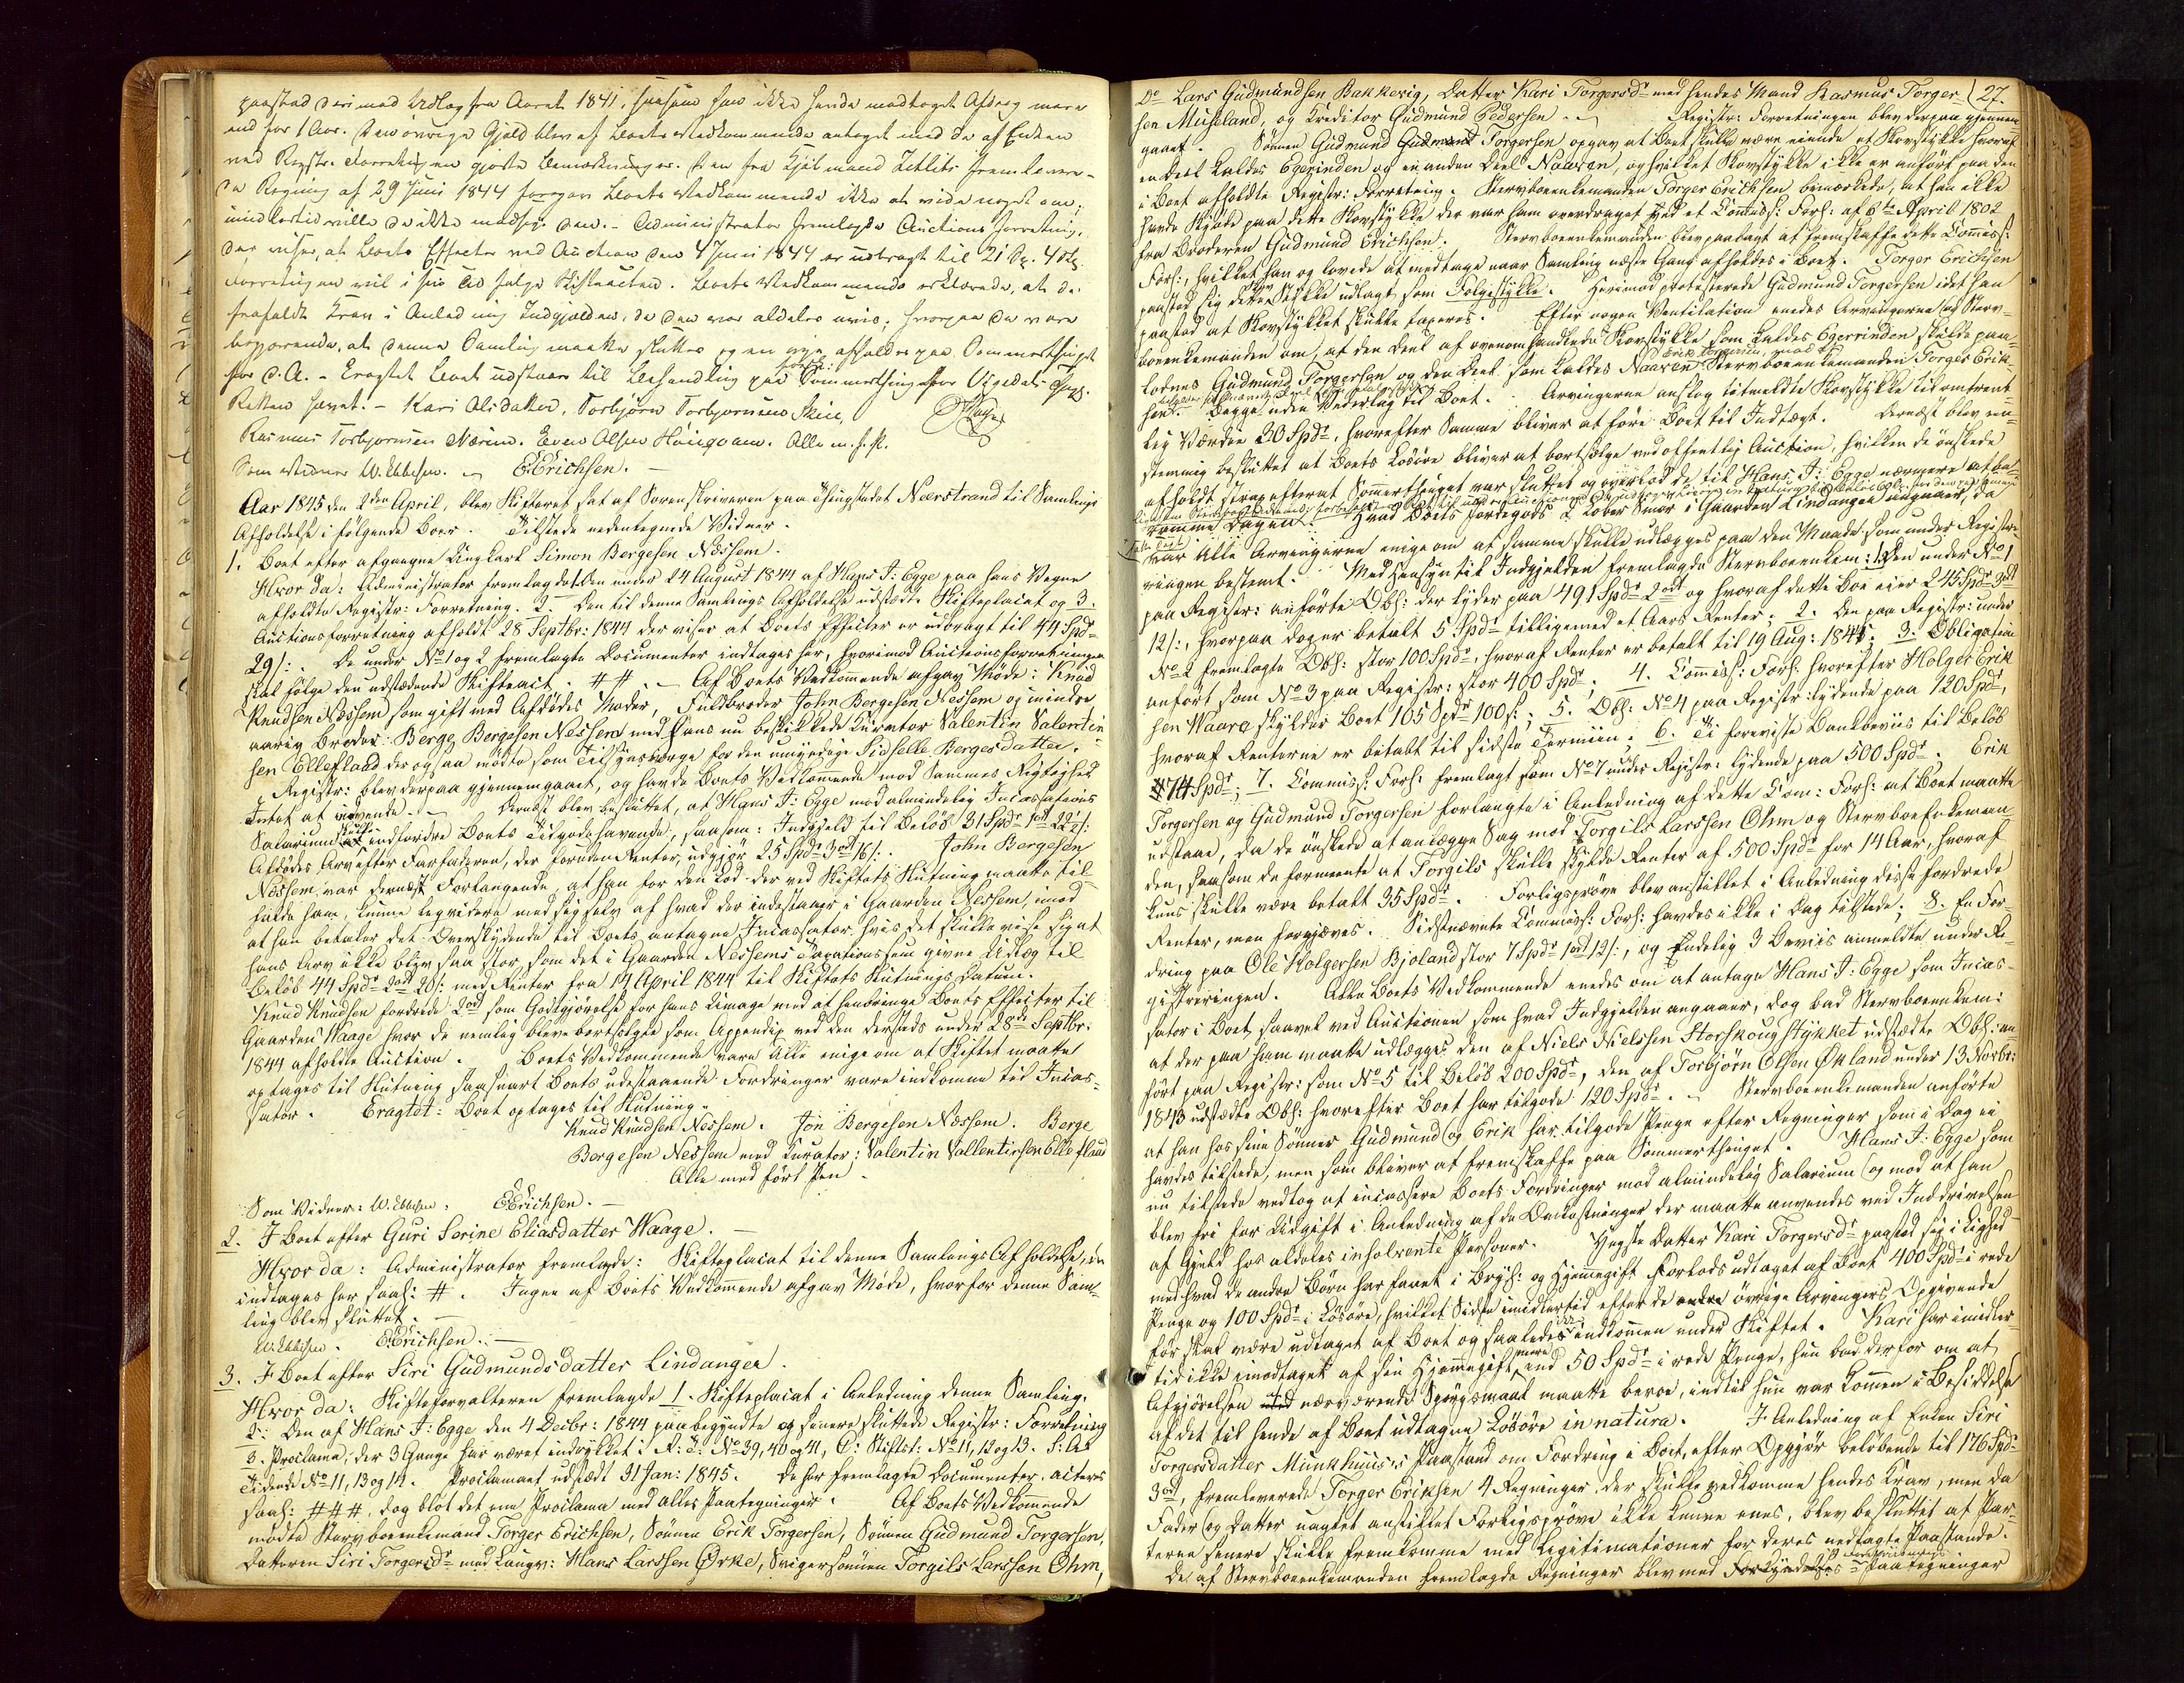 paastod derimod Udlæg fra Aaret 1841, saasom hun ikke havde modtaget Afdrag mere
end for 1 Aar. Den øvrige Gjeld blev af Boets Vedkommende antaget med de af Enken
ved Registr: Forretningen gjorte Bemærkninger. Den fra Kjøbmand Zetlitz fremlevere-
de Regning af 29 Juni 1844 foregav Boets Vedkommende ikke at vide noget om;
imidlertid ville de ikke modsige den. - Administrator fremlagde Auctions forretning,
der viser, at Boets Effecter ved Auction den 4 Juni 1844 er udbragt til 21 Sp. 4 ort
Forretningen vil i sin Tid følge Skifteacten. Boets Vedkommende erklærede, at de
frafaldt Krav i Anledning Indgjælden, da den var aldeles uvis; hvorpaa de vare
begjærende, at denne Samling maatte sluttes og en nye afholdes paa Sommerthinget
for d. A. - Eragtet Boet udstaaer til Behandling paa første Sommerthing for Vigedals Thgl.
Retten hævet. - Kari Olsdatter, Torbjørn Torbjørnsen Skiæ,
Rasmus Torbjørnsen Nærim. Even Olsen Hougvam. Alle m. f. P.
Som Vidner W. Ebbesen. E. Erichsen.
Aar 1845 den 2den April, blev Skifteret sat af Sorenskriveren paa Thingstedet Neerstrand til Samlings
Afholdelse i følgende Boer. Tilstede nedentegnede Vidner.
1. Boet efter afgangne Ungkarl Simon Bergesen Nessem.
Hvor da: Administrator fremlagde 1. Den under 24 August 1844 af Hans J: Egge paa hans Vegne
afholdte Registr: Forretning. 2. Den til denne Samlings Afholdelse udstædte Skifteplacat og 3.
Auctionsforretning afholdt 28 Septbr: 1844 der viser at Boets Effecter er udbragt til 44 Spdr
29 /: . De under No 1 og 2 fremlagte Documenter indtages her, hvorimod Auctionsforretningen
skal følge den udstædende Skifteact. ## . Af Boets Vedkommende afgav Møde: Knud
Knudsen Nessem som gift med Afdødes Moder, Fuldbroder John Bergesen Nessem og mindre
aarig Broder: Berge Bergesen Nessem med hans nu beskikkede Curator Valentin Valentin-
sen Ellefland der ogsaa mødte som Tilsynsværge for den umyndige Sidselle Bergesdatter.
Registr: blev derpaa gjennemgaaet, og havde Boets Vedkommende mod Sammes Rigtighed
Intet at indvende. Dernæst blev besluttet, at Hans J: Egge mod almindelig Incassations
Salarium skulle indfordre Boets Tilgodehavende, saasom: Indgjeld til Beløb 31 Spdr 1 ort 22 /:
Afdødes Arv efter Farfaderen, der foruden Renter, udgjør 25 Spdr 3 ort 16 /: . John Bergesen
Nessem, var dernæst Forlangende, at han for den Lod der ved Skiftets Slutning maatte til-
falde ham, kunne leqvidere med sig selv af hvad der indestaaer i Gaarden Nessem, imod
at han betaler det Overskydende til Boets antagne Incassator, hvis det skulle vise sig at
hans Arv ikke blev saa stor som det i Gaarden Nessems Taxationssum givne Udlæg til
Beløb 44 Spdr 2 ort 20 /: med Renter fra 14 April 1844 til Skiftets Slutnings Datum.
Knud Knudsen fordrede 2 ort som Godtgjørelse for hans Umage med at henbringe Boets Effecter til
Gaarden Waage hvor de nemlig bleve bortsolgte som Appendix ved den dersteds under 28de Septbr:
1844 afholdte Auction. Boets Vedkommende vare Alle enige om at Skiftet maatte
optages til Slutning saasnart Boets udestaaende Fordringer vare indkomne til Incas-
sator. Eragtet: Boet optages til Slutning.
Knud Knudsen Nessem. Jon Bergesen Nessem. Berge
Bergesen Nessem med Curator: Valentin Vallentinsen Ellefland
Alle med ført Pen.
Som Vidner: W. Ebbesen. E. Erichsen.
2. I Boet efter Guri Serine Eliasdatter Waage.
Hvor da: Administrator fremlagde: Skifteplacat til denne Samlings Afholdelse, den
indtages her saal: #. Ingen af Boets Vedkommende afgav Møde, hvorfor denne Sam-
ling blev sluttet.
W. Ebbesen. E. Erichsen.
3. I Boet efter Siri Gudmundsdatter Lindanger.
Hvor da: Skifteforvalteren fremlagde 1. Skifteplacat i Anledning denne Samling.
2. Den af Hans J: Egge den 4 Decbr: 1844 paabegyndte og senere sluttede Registr: Forretning
3. Proclama, der 3 Gange har været indrykket i R: T: No 39, 40 og 41, C: Stiftst: No 11, 12 og 13. S: A:
Tidende No 11, 13 og 14. Proclamaet udstædt 31 Jan: 1845. De her fremlagte Documenter acteres
saal: ###, dog blot det ene Proclama med alles Paategninger. Af Boets Vedkommende
mødte Stervboenkemand Torger Erichsen, Sønnen Erik Torgersen, Sønnen Gudmund Torgersen,
Datteren Siri Torgersdr med Laugv: Hans Larssen Ørke, Svigersønnen Torgils Larssen Ohm,
27.
Do Lars Gudmundsen Bakkevig, Datter Kari Torgersdr med hendes Mand Rasmus Torger-
sen Museland, og Creditor Gudmund Pedersen. Registr: Forretningen blev derpaa gjennem-
gaaet. Sønnen Gudmund Torgersen opgav at Boet skulle være eiende et Skovstykke hvoraf
en Deel kaldes Egerinden og en anden Deel Naaven, og hvilket Skovstykke ikke er anført paa den
i Boet afholdte Registr: Forretning. Stervboenkemanden Torger Erichsen bemærkede, at han ikke
havde Skjøde paa dette Skovstykke der var ham overdraget ved et Commiss: Forl: af 6te April 1802
fra Broderen Gudmund Erichsen. Stervboenkemanden blev paalagt at fremskaffe dette Commiss:
Forl:, hvilket han og lovede at medtage naar Samling næste Gang afholdes i Boet. Torger Erichsen
paastod sig dette Stykke udlagt som Følgestykke. Herimod protesterede Gudmund Torgersen idet han
paastod at Skovstykket skulle taxeres. Efter nogen Ventilation enedes Arvingerne og Sterv-
boenkemanden om, at den Deel af ovenomhandlede Skovstykke som kaldes Egerrinden skulle paa-
lodnes Gudmund Torgersen og den Deel som kaldes Naaven Erik Torgersen, mod Stervboenkemanden Torger Erik-
sen. Begge uden Vederlag til Boet. Arvingerne anslog bemeldte Skovstykke til omtrent-
lig Værdie 20 Spdr, hvorefter Samme bliver at føre Boet til Indtægt. Dernæst blev een-
stemmig besluttet at Boets Løsøre bliver at bortsælge ved offentlig Auction, hvilken de ønskede
afholdt strax efterat Sommerthinget var sluttet og overlod de til Hans J: Egge nærmere at be-
ramme Dagen. Hvad Boets Jordegods 2 Løber Smør i Gaarden Lindanger angaaer, da
var Alle Arvingerne enige om at samme skulle udlægges paa den Maade som under Registre-
ringen bestemt. Med Hensyn til Indgjelden fremlagde Stervboenkem: 1. Den under No 1
paa Registr: anførte Obl: der lyder paa 491 Spdr 2 ort og hvoraf dette Boe eier 245 Spdr 3 ort
12 /:, hvorpaa dog er betalt 5 Spdr tilligemed et Aars Renter; 2. Den paa Registr: under
No 2 fremlagte Obl: stor 100 Spdr, hvoraf Renter er betalt til 19 Aug: 1844. 3. Obligation
anført som No 3 paa Registr: stor 400 Spdr; 4. Commiss: Forl: hvorefter Holger Erik-
sen Waare skylder Boet 105 Spdr 100 s:; 5. Obl: No 4 paa Registr: lydende paa 120 Spdr,
hvoraf Renterne er betalt til sidste Termiin; 6. Ti foreviste Bankbeviis til Beløb
74 Spdr; 7. Commiss: Forl: fremlagt som No 7 under Registr: lydende paa 500 Spdr. Erik
Torgersen og Gudmund Torgersen forlangte i Anledning af dette Com: Forl: at Boet maatte
udstaae, da de ønskede at anlægge Sag mod Torgils Larssen Ohm og Stervboenkeman-
den, saasom de formeente at Torgils skulle skylde Renter af 500 Spdr for 14 Aar, hvoraf
kuns skulle være betalt 35 Spdr. Forligsprøve blev anstillet i Anledning disse fordrede
Renter, men forgjæves. Sidstnævnte Commiss: Forl: havdes ikke i Dag tilstede; 8. En For-
dring paa Ole Holgersen Bjoland stor 7 Spdr 1 ort 12 /:, og Endelig 3 Beviis anmeldte under Re-
gistreringen. Alle Boets Vedkommende enedes om at antage Hans J: Egge som Incas-
sator i Boet, saavel ved Auctionen som hvad Indgjelden angaaer, dog bad Stervboenkem:
at der paa ham maatte udlægges den af Niels Nielssen Storskougstykket udstædte Obl: an-
ført paa Registr: som No 5 til Beløb 200 Spdr, den af Torbjørn Olsen Økland under 13 Novbr:
1843 udstædte Obl: hvorefter Boet har tilgode 120 Spdr. Stervboenkemanden anførte
at han hos sine Sønner Gudmund og Erik har tilgode Penge efter Regninger som i Dag ei
havdes tilstede, men som bliver at fremskaffe paa Sommerthinget. Hans J: Egge som
nu tilstede vedtog at incassere Boets Fordringer mod almindelig Salarium og mod at han
blev fri for Udgift i Anledning af de Omkostninger der maatte anvendes ved Inddrivelsen
af Gjeld hos aldeles insolvente Personer. Yngste Datter Kari Torgersdr paastod sig i Lighed
med hvad de andre Børn har faaet i Bryl: og Hjemmegift Forlods udtaget af Boet 400 Spdr i rede
Penge og 100 Spdr i Løsøre, hvilket Sidste imidlertid efter de øvrige Arvingers Opgivende
før skal være udtaget af Boet og saaledes ikke indkommen under Skiftet. Kari har imidler-
tid ikke imodtaget af sin Hjemmegift mere end 50 Spdr i rede Penge, hun bad derfor om at
Afgjørelsen nærværende Spørgsmaal maatte beroe, indtil hun var kommen i Besiddelse
af det til hende af Boet udtagne Løsøre in natura. I Anledning af Enken Siri
Torgersdatter Munkhuus's Paastand om Fordring i Boet, efter Opgjør beløbende til 176 Spdr
3 ort, fremleverede Torger Eriksen 4 Regninger, der skulle vedkomme hendes Krav, men da
Fader og Datter uagtet anstillet Forligsprøve ikke kunne enes, blev besluttet at Par-
terne senere skulle fremkomme med Legitimationer for deres nedlagte Paastande.
De af Stervboenkemanden fremlagde Regninger blev med Paategninger